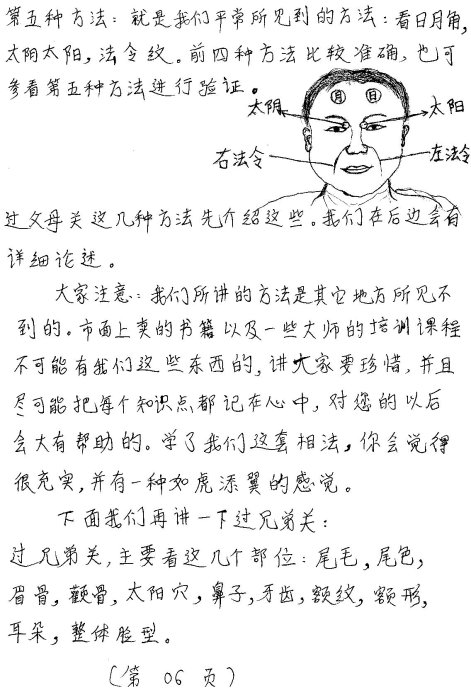 第五种方法：就是我们平常所见到的方法：看日月角，
太阴太阳，法令纹。前四种方法比较准确，也可
参看第五种方法进行验证。
月 日
太阴 太阳
右法令 左法令
过父母关这几种方法先介绍这些。我们在后边会有
详细论述。
大家注意：我们所讲的方法是其它地方所见不
到的。市面上卖的书籍以及一些大师的培训课程
不可能有我们这些东西的，讲大家要珍惜，并且
尽可能把每个知识点都记在心中，对您的以后
会大有帮助的。学了我们这套相法，你会觉得
很充实，并有一种如虎添翼的感觉。
下面我们再讲一下过兄弟关：
过兄弟关，主要看这几个部位：尾毛，尾色，
眉骨，颧骨，太阳穴，鼻子，牙齿，额纹，额形，
耳朵，整体脸型。
（第 06 页）